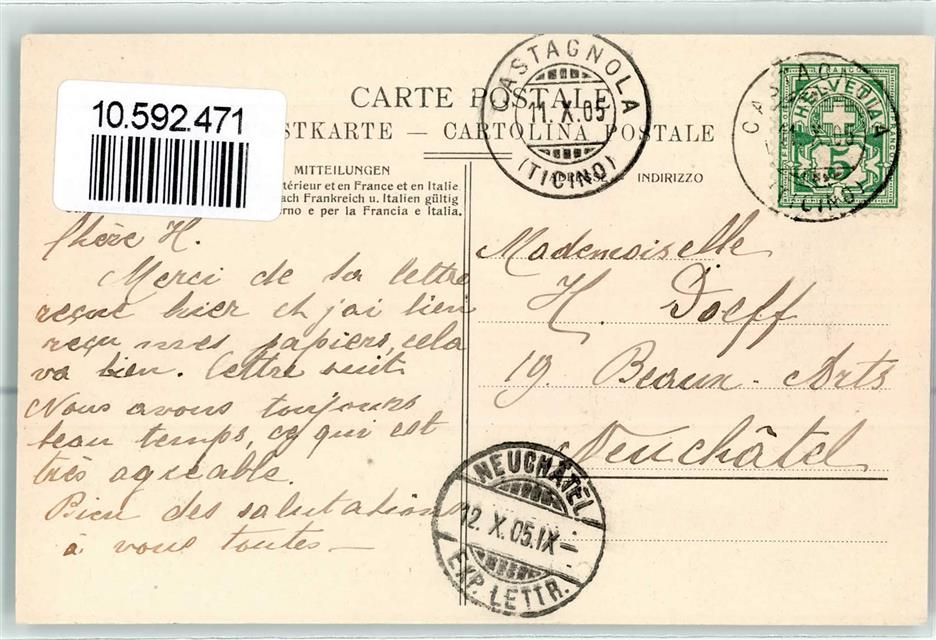 10.592.471
CARTE POSTALE
STKARTE — CARTOLINA POSTALE
MITTEILUNGEN
térieur et en France et en Italie.
ach Frankreich u. Italien gültig
erno e per la Francia e Italia.
ADRESSE INDIRIZZO
CASTAGNOLA
11.X.05
(TICINO)
HELVETIA
5
Chère H.
Merci de ta lettre
reçue hier et j'ai bien
reçu mes papiers, cela
va bien. Lettre suit.
Nous avons toujours
beau temps, ce qui est
très agréable.
Bien des salutations
à vous toutes —
Mademoiselle
H. Doeff
19. Beaux-Arts
Neuchâtel
NEUCHÂTEL
12.X.05.IX—
EXP. LETTR.